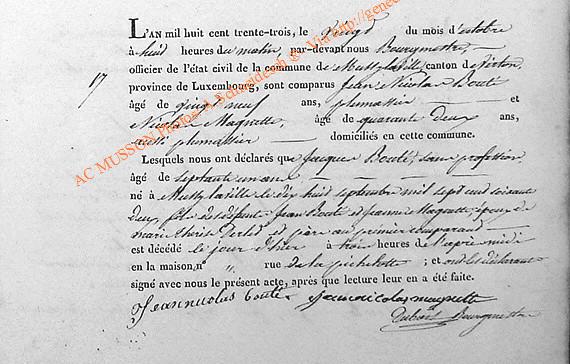 L'AN mil huit cent trente-trois, le vingt du mois d'octobre
à huit heures du matin, par-devant nous Bourgmestre
officier de l'état civil de la commune de Mussy-la-ville, canton de Virton,
province de Luxembourg, sont comparus Jean Nicolas Bouté
17
âgé de vingt neuf ans, plumassier et
Nicolas Magnette, âgé de quarante deux ans,
aussi plumassier domiciliés en cette commune.
Lesquels nous ont déclarés que Jacques Bouté, sans profession
âgé de septante un ans
né à Mussy la ville le dix huit septembre mil sept cent soixante
deux, fils de défunts Jean Bouté et Jeanne Magnette, époux de
marie therese et père au premier comparant
est décédé le jour d'hier à trois heures de l'après midi
en la maison, nº „ rue de la pichelotte ; et ont les déclarant
signé avec nous le présent acte, après que lecture leur en a été faite.
Jean nicolas boute Jean nicolas magnette
Bourgmestre
AC MUSSON Photos A Schneidesch © Via http://gene